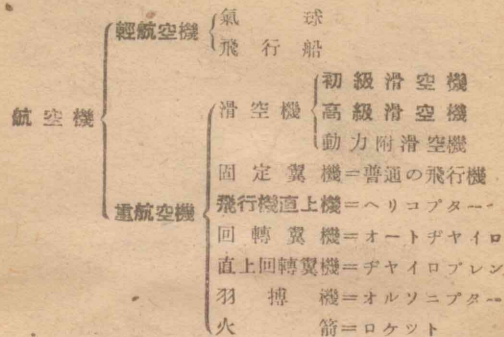 輕航空機
氣球
飛行船
航空機
滑空機
初級滑空機
高級滑空機
動力附滑空機
固定翼機=普通の飛行機
重航空機
飛行機直上機=ヘリコプター
回轉翼機=オートヂヤイロ
直上回轉翼機=ヂヤイロプレン
羽搏機=オルソニプター
火箭=ロケット